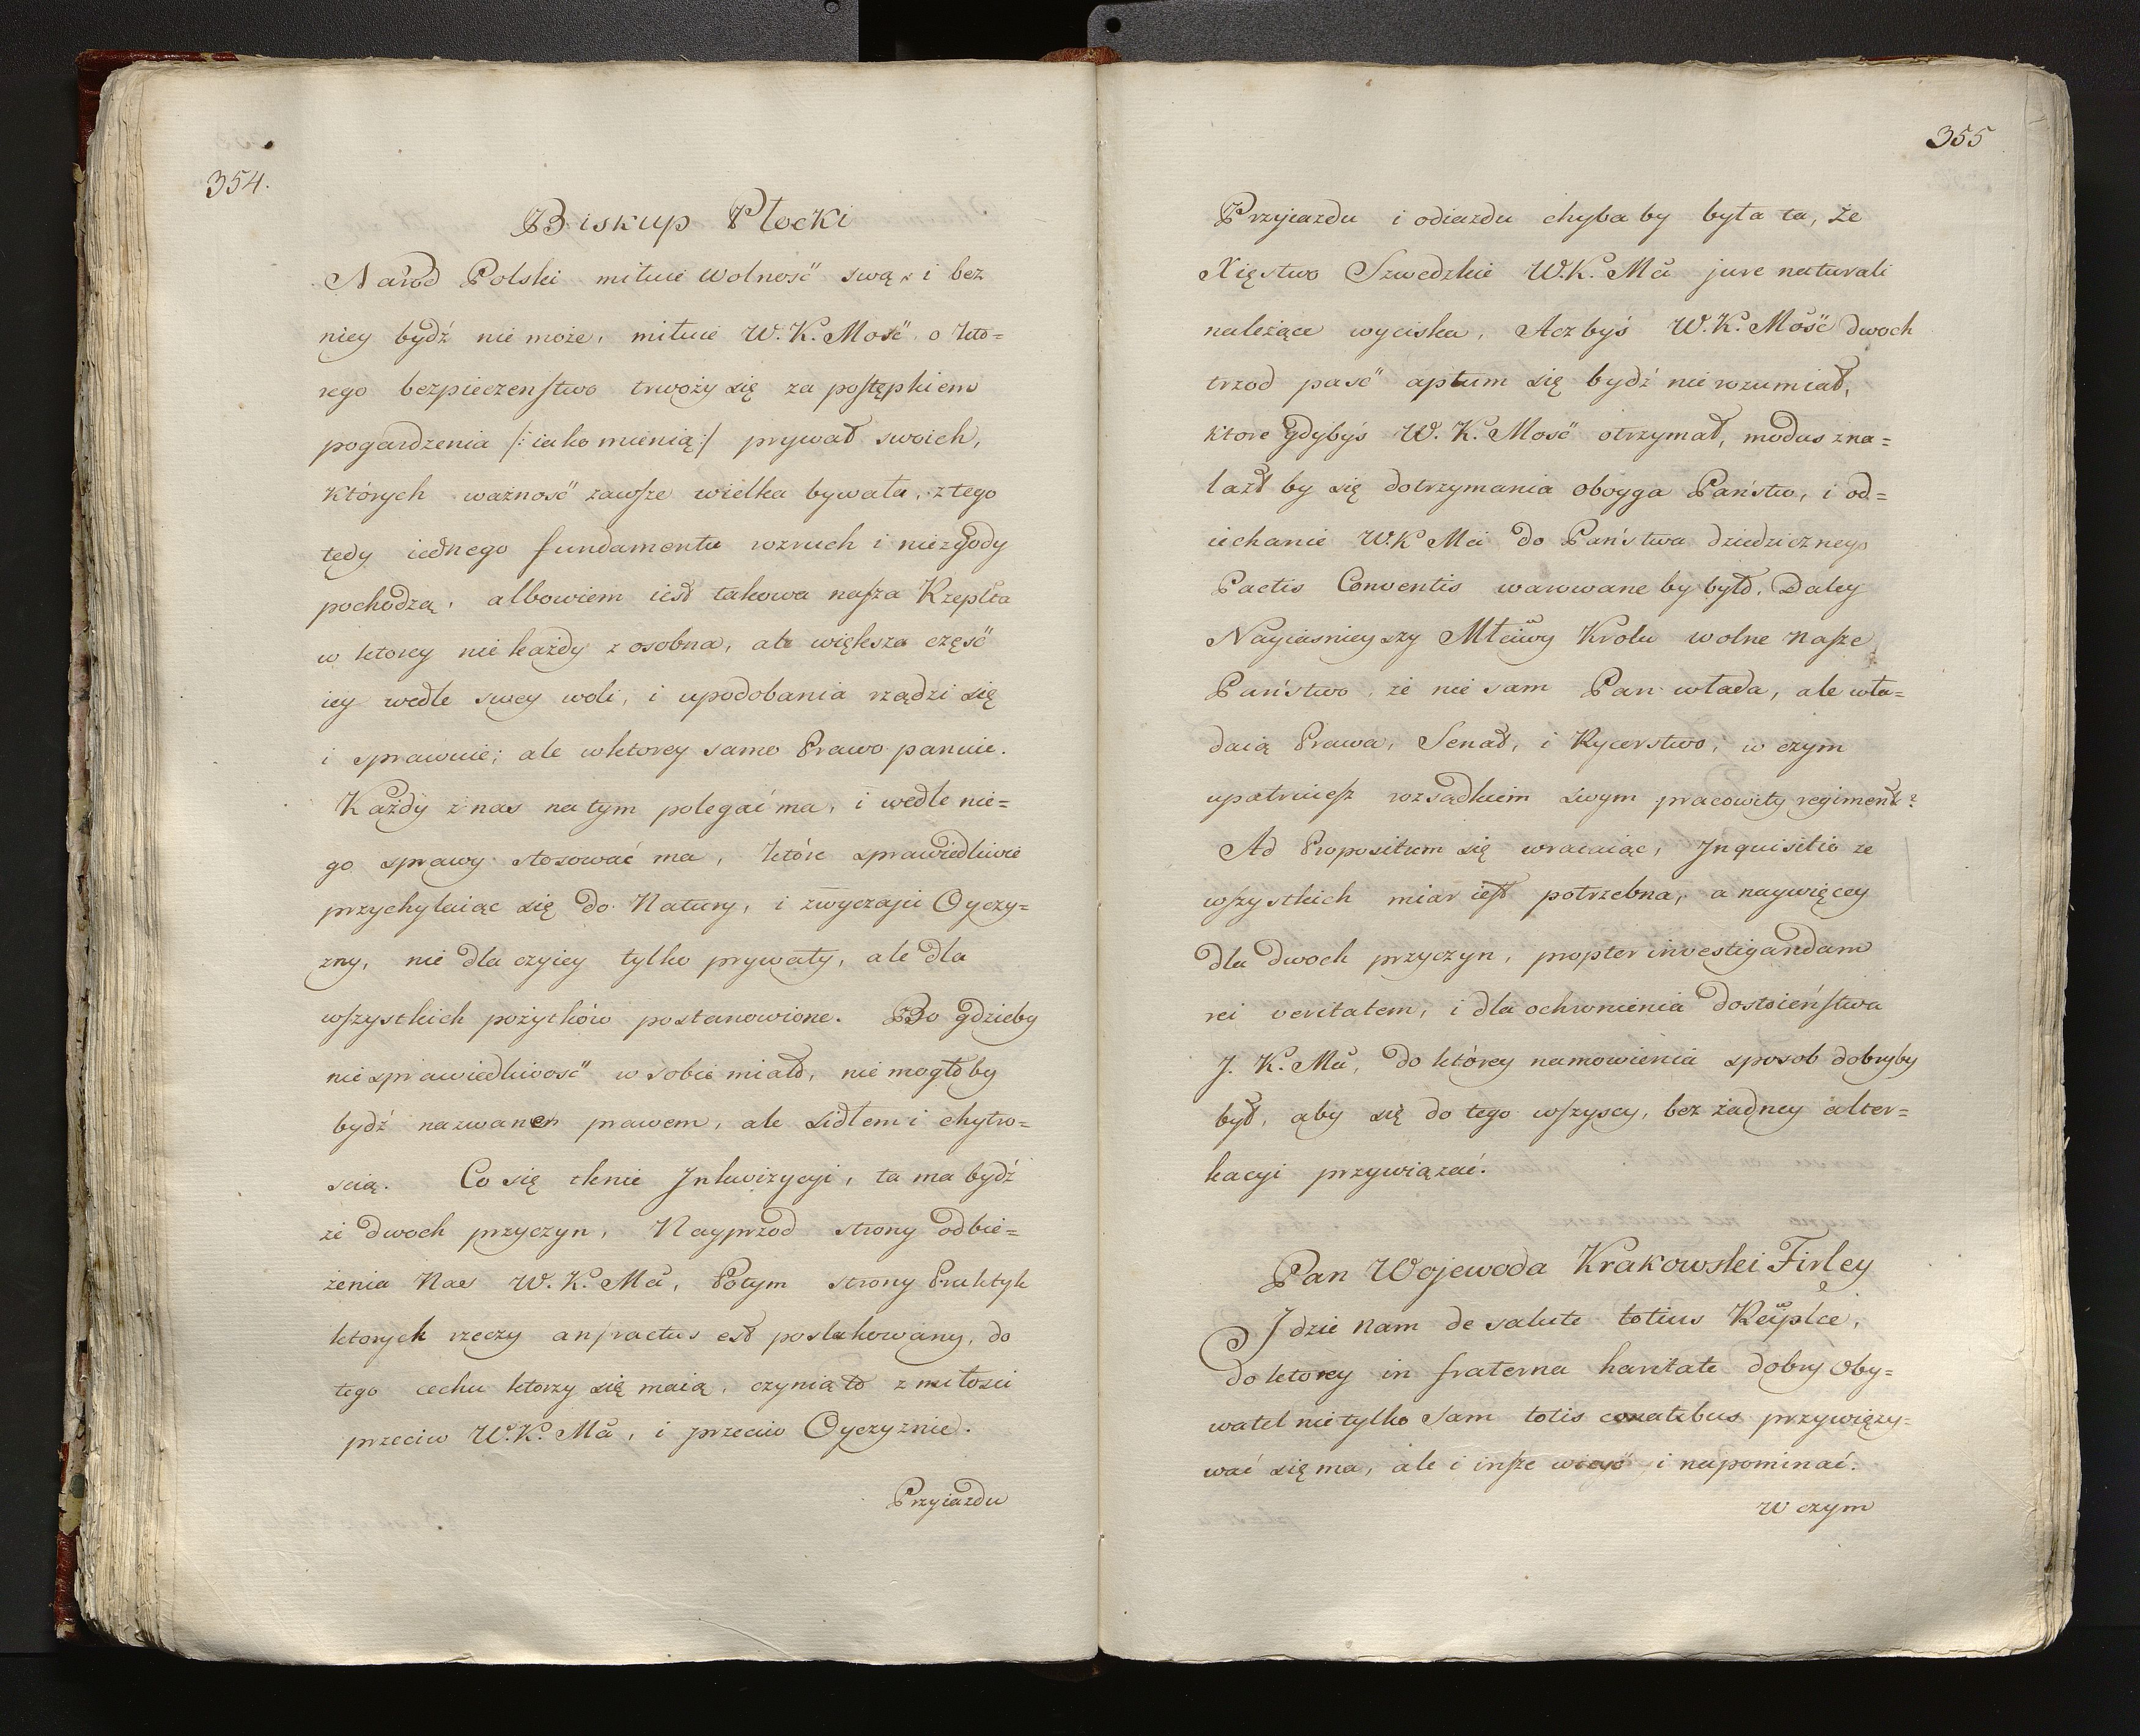 354.
Biskup Płocki
Naród Polski miłuie wolność swą, i bez
niey bydź nie może, miłuie W. K. Mość, o któ=
rego bezpieczenſtwo trwoży się za poſtępkiem
pogardzenia /: iako mienią :/ prywat swoich,
których ważność zawſze wielka bywała, z tego
tedy iednego fundamentu rozruch i niezgody
pochodzą, albowiem iest takowa naſza Rzeplta
w ktorey nie każdy z osobna, ale większa część
iey wedle swey woli, i upodobania rządzi się
i sprawuie; ale w ktorey samo Prawo panuie.
Każdy z nas na tym polegać ma, i wedle nie=
go sprawy stosować ma, któré sprawiedliwie
przychylaiąc się do Natury, i zwyczaju Oyczy=
zny, nie dla czyiey tylko prywaty, ale dla
wſzystkich pożytków postanowione. Bo gdzieby
nie sprawiedliwość w sobie miało, nie mogłoby
bydź nazwanem prawem, ale sidłem i chytro=
scią. Co się tknie Inkwizycyi, ta ma bydź
ze dwoch przyczyn, Nayprzod strony odbie=
żenia Nas W. K. Mći, Potym strony Praktyk
ktorych rzeczy anfractus est poszlakowany, do
tego cechu ktorzy się maią, czynią to z miłosci
przeciw W. K. Mći, i przeciw Oyczyznie.
Przyiazdu
355
Przyiazdu i odiazdu chyba by była ta, że
Xięstwo Szwedzkie W. K. Mći jure naturali
należące wyciska, Aczbyś W. K. Mość dwoch
trzod paść aptum się bydź nie rozumiał,
ktore gdybyś W. K. Mość otrzymał, modus zna=
lazł by się dotrzymania oboyga Państw, i od=
iechanie W. K Mci do Państwa dziedzicznego
Pactis Conventis warowane by było. Daley
Nayiasnieyszy Młciwy Krolu wolne naſze
Państwo, że nie sam Pan włada, ale wła=
daią Prawa, Senat, i Rycerstwo, w czym
upatruieſz rozsądkiem swym pracowity regiment?
Ad Propositum się wracaiąc, Jnquisitio ze
wſzystkich miar ieſt potrzebna, a naywięcey
dla dwoch przyczyn, propter investigandam
rei veritatem, i dla ochronienia dostoieńſtwa
J. K. Mći, do którey namowienia sposob dobryby
był, aby się do tego wſzyscy, bez żadney alter=
kacyi przywiązać.
Pan Wojewoda Krakowski Firley
Jdzie nam de salute totius Reiplcę,
do ktorey in fraterna haritate dobry Oby=
watel nie tylko sam totis conatibus przywięzy=
wać się ma, ale i inſze wieść i napominać.
W czym